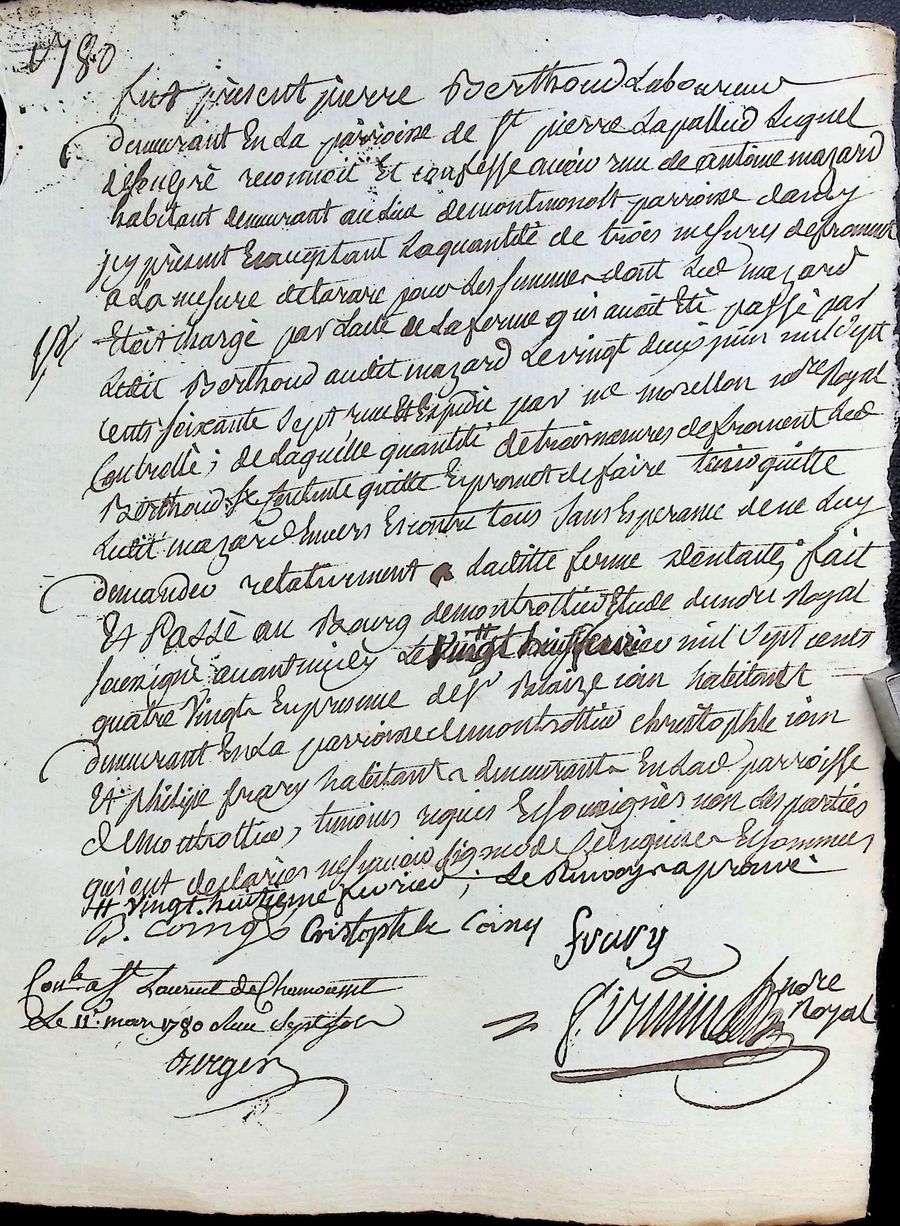 1780
fut présent pierre Berthoud Laboureur
demeurant En La parroisse de St pierre Lapallud Lequel
de son gré reconnoit Et confesse avoir reçu de antoine mazard
habitant demeurant au Lieu de montmonost parroisse dancy
icy présent Et acceptant La quantité de trois mesures de froment
a La mesure de tarare pour Les semences dont Led mazard
Etoit chargé par Lacte de La ferme qui avoit Eté passé par
Ledit Berthoud audit mazard Le vingt deux juin mil sept
cents soixante sept reçu Et Expédié par me morellon nore Royal
Controllé ; de Laquelle quantité de trois mesures de froment Led
Berthoud se Contente quitte Et promet de faire tenir quitte
Ledit mazard Envers Et contre tous sans Esperance de ne Luy
demander relativement a Laditte ferme fait
Et Passé au Bourg demontrottier Etude du nore Royal
soussigné avant midy Le vingt huit fevrier mil sept cents
quatre vingt En presence de Sr Blaize coin habitant
demeurant En La parroisse demontrottier christophle coin
Et philipe frary habitants demeurants En Lad parroisse
de montrottier, temoins requis Et soussignés non Les parties
qui ont declarées ne sçavoir signer de Ce Enquises Et sommées
# vingt huitieme fevrier ; Le Renvoy approuvé
B. Coing Cristophle Coiny
frary
nore Royal
Conlé a St Laurent de Chamousset
Le 11e mars 1780 Reçu sept sols